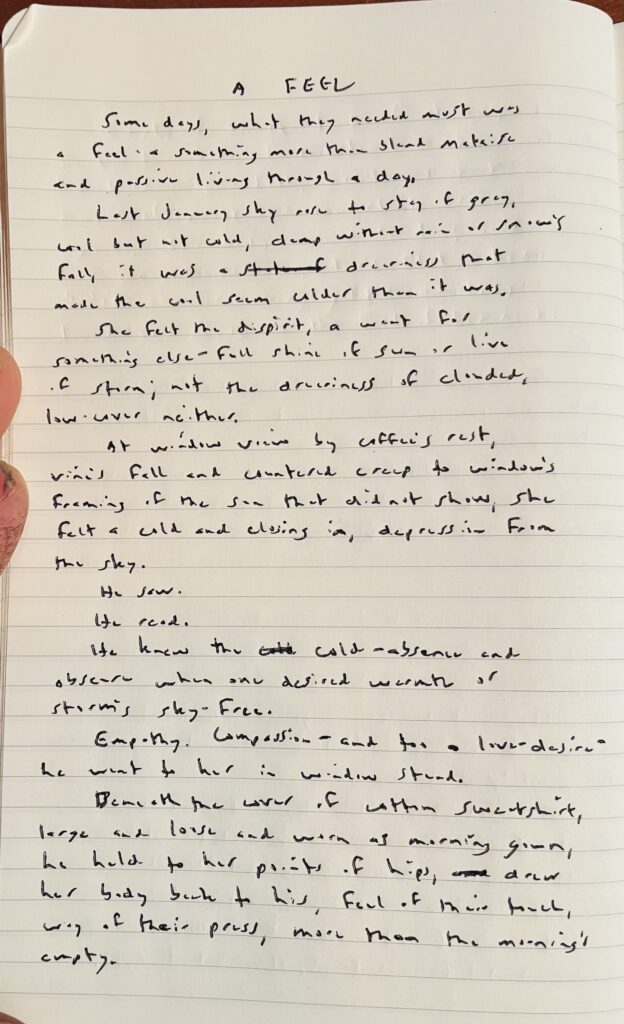 A FEEL
Some days, what they needed most was
a feel - a something more than bland malaise
and passive living through a day.
Last January sky rose to stay of grey,
cool but not cold, damp without rain or snow's
fall, it was a dreariness that
made the cool seem colder than it was.
She felt the dispirit, a want for
something else - full shine of sun or live
of storm; not the dreariness of clouded,
low-cover neither.
At window view by coffee's rest,
vine's fall and countered creep to window's
framing of the sun that did not show, she
felt a cold and closing in, depression from
the sky.
He saw.
He read.
He knew the cold - absence and
obscure when one desired warmth or
storm's sky-free.
Empathy. Compassion - and too a love-desire -
he went to her in window stand.
Beneath the cover of cotton sweatshirt,
large and loose and worn as morning gown,
he held to her points of hips, drew
her body back to his, feel of their touch,
way of their press, more than the morning's
empty.